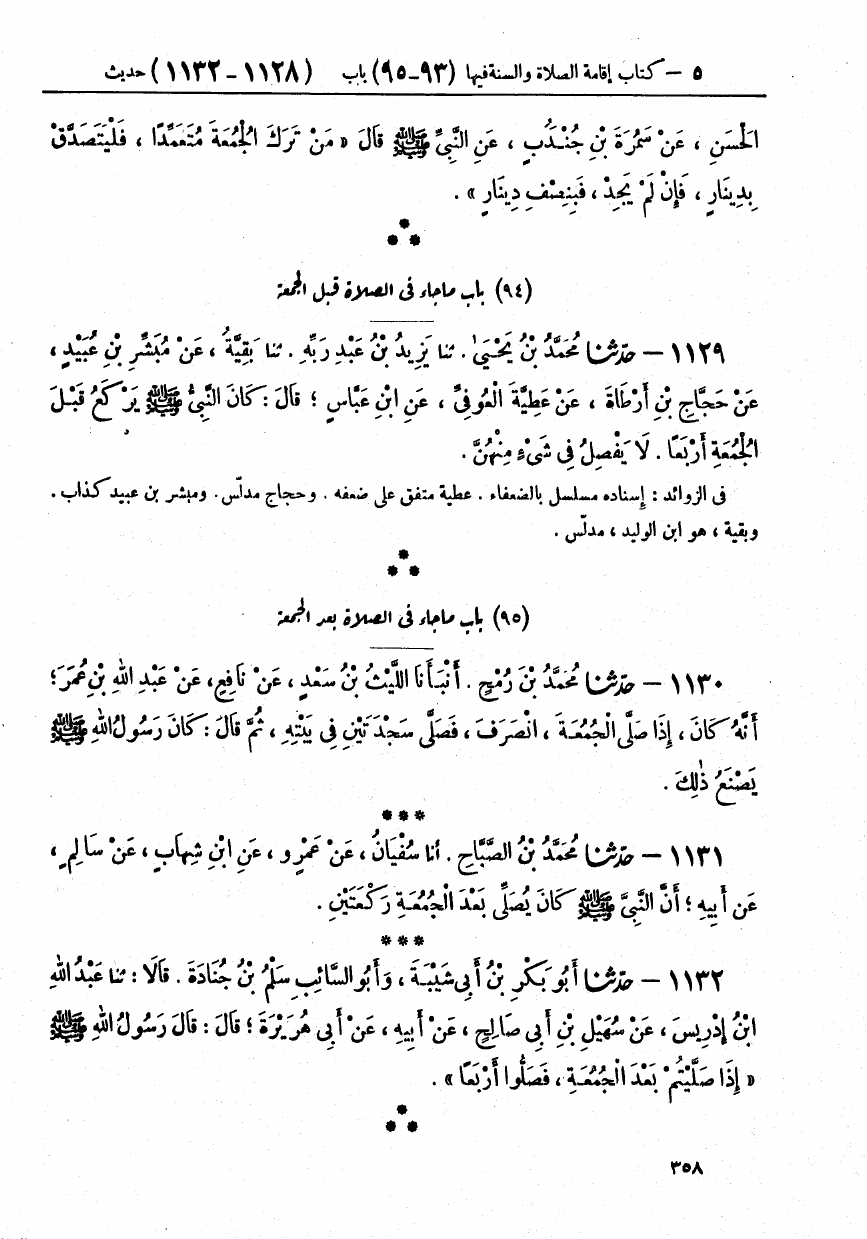 ٥ – كتاب إقامة الصلاة والسنة فيها (٩٣-٩٥) باب (١١٢٨-١١٣٢) حديث
الْحَسَنِ ، عَنْ سَمُرَةَ بْنِ جُنْدُبٍ ، عَنِ النَّبِيِّ ﷺ قَالَ « مَنْ تَرَكَ الْجُمُعَةَ مُتَعَمِّدًا ، فَلْيَتَصَدَّقْ
بِدِينَارٍ ، فَإِنْ لَمْ يَجِدْ ، فَبِنِصْفِ دِينَارٍ » .
*
* *
(٩٤) باب ماجاء فى الصلاة قبل الجمعة
١١٢٩ – حدّثنا مُحَمَّدُ بْنُ يَحْيَىٰ . ثنا يَزِيدُ بْنُ عَبْدِ رَبِّهِ . ثنا بَقِيَّةُ ، عَنْ مُبَشِّرِ بْنِ عُبَيْدٍ ،
عَنْ حَجَّاجِ بْنِ أَرْطَاةَ ، عَنْ عَطِيَّةَ الْعَوْفِيِّ ، عَنِ ابْنِ عَبَّاسٍ ؛ قَالَ : كَانَ النَّبِيُّ ﷺ يَرْكَعُ قَبْلَ
الْجُمُعَةِ أَرْبَعًا . لَا يَفْصِلُ فِى شَىْءٍ مِنْهُنَّ .
فى الزوائد : إسناده مسلسل بالضعفاء . عطية متفق على ضعفه . وحجاج مدلّس . ومبشر بن عبيد كذاب .
وبقية ، هو ابن الوليد ، مدلّس .
*
* *
(٩٥) باب ماجاء فى الصلاة بعد الجمعة
١١٣٠ – حدّثنا مُحَمَّدُ بْنُ رُمْحٍ . أَنْبَأَنَا اللَّيْثُ بْنُ سَعْدٍ ، عَنْ نَافِعٍ ، عَنْ عَبْدِ اللهِ بْنِ عُمَرَ ؛
أَنَّهُ كَانَ ، إِذَا صَلَّى الْجُمُعَةَ ، انْصَرَفَ ، فَصَلَّى سَجْدَتَيْنِ فِى بَيْتِهِ ، ثُمَّ قَالَ : كَانَ رَسُولُ اللهِ ﷺ
يَصْنَعُ ذٰلِكَ .
* * *
١١٣١ – حدّثنا مُحَمَّدُ بْنُ الصَّبَّاحِ . أنا سُفْيَانُ ، عَنْ عَمْرٍو ، عَنِ ابْنِ شِهَابٍ ، عَنْ سَالِمٍ ،
عَن أَبِيهِ ؛ أَنَّ النَّبِيَّ ﷺ كَانَ يُصَلِّى بَعْدَ الْجُمُعَةِ رَكْعَتَيْنِ .
* * *
١١٣٢ – حدّثنا أَبُو بَكْرِ بْنُ أَبِى شَيْبَةَ ، وَأَبُو السَّائِبِ سَلْمُ بْنُ جُنَادَةَ . قَالَا : ثنا عَبْدُ اللهِ
ابْنُ إِدْرِيسَ ، عَنْ سُهَيْلِ بْنِ أَبِى صَالِحٍ ، عَنْ أَبِيهِ ، عَنْ أَبِى هُرَيْرَةَ ؛ قَالَ : قَالَ رَسُولُ اللهِ ﷺ
« إِذَا صَلَّيْتُمْ بَعْدَ الْجُمُعَةِ ، فَصَلُّوا أَرْبَعًا » .
*
* *
٣٥٨